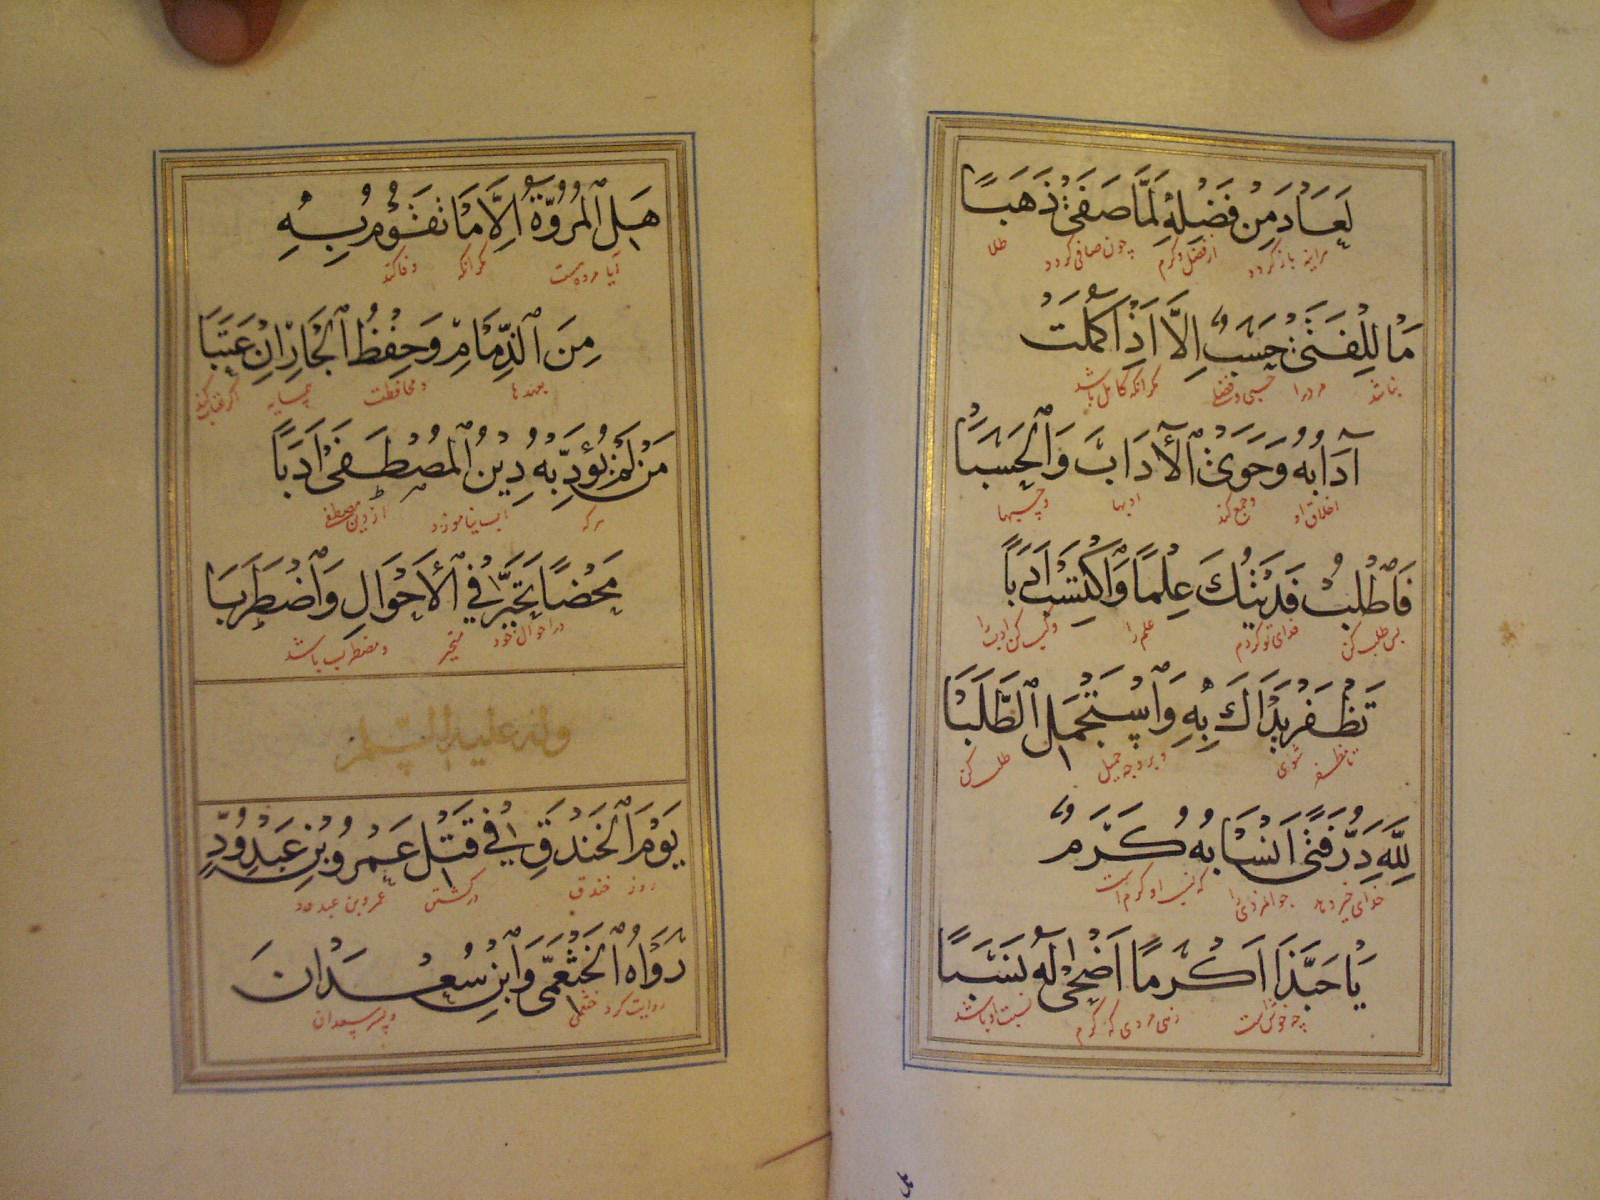 لَعَادَ مِنْ فَضْلِهِ لَمَّا صَفَىٰ ذَهَبًا
هراینه بازگردد از فضل و کرم چون صافی گردد طلا
مَا لِلْفَتَىٰ حَسَبٌ اِلَّا اِذَا كَمُلَتْ
نباشد مردرا حسبی و فضلی مگر انکه کامل باشد
آدَابُهُ وَحَوَىٰ الْآدَابَ وَالْحَسَبَا
اخلاق او و جمع کند ادبها و حسبها
فَاطْلُبْ فَدَيْتُكَ عِلْمًا وَاكْتَسِبْ اَدَبًا
پس طلب کن فدای تو کردم علم را و کسب کن ادب را
تَظْفَرْ يَدَاكَ بِهِ وَاسْتَجْمِلِ الطَّلَبَا
تا مظفر شوی و بر وجه جمیل طلب کن
لِلّٰهِ دَرُّ فَتًى اَنْسَابُهُ كَرَمٌ
خدای خیر دهد جوانمردی را که نسب او کرم است
يَا حَبَّذَا كَرَمًا اَضْحَىٰ لَهُ نَسَبًا
چه خوش است زهی مردی که کرم نسبت او باشد
هَلِ الْمُرُوَّةُ اِلَّا مَا تَقُوْمُ بِهِ
آیا مروه است مگر انکه وفا کند
مِنَ الذِّمَامِ وَحِفْظُ الْجَارِ اِنْ عَتَبَا
بعهدها و محافظت همسایه اگر عتاب کند
مَنْ لَمْ يُؤَدِّبْهُ دِيْنُ الْمُصْطَفَىٰ اَدَبًا
هرکه ادب نیاموزد از دین مصطفی
مَحْضًا تَحَيَّرَ فِي الْاَحْوَالِ وَاضْطَرَبَا
در احوال خود متحیر و مضطرب باشد
وله عليه السلم
يَوْمَ الْخَنْدَقِ فِي قَتْلِ عَمْرِو بْنِ عَبْدِ وُدٍّ
روز خندق در کشتن عمرو بن عبدود
رَوَاهُ الْخَثْعَمِيُّ وَابْنُ سُعْدَانَ
روایت کرد خثعمی و پسر سعدان